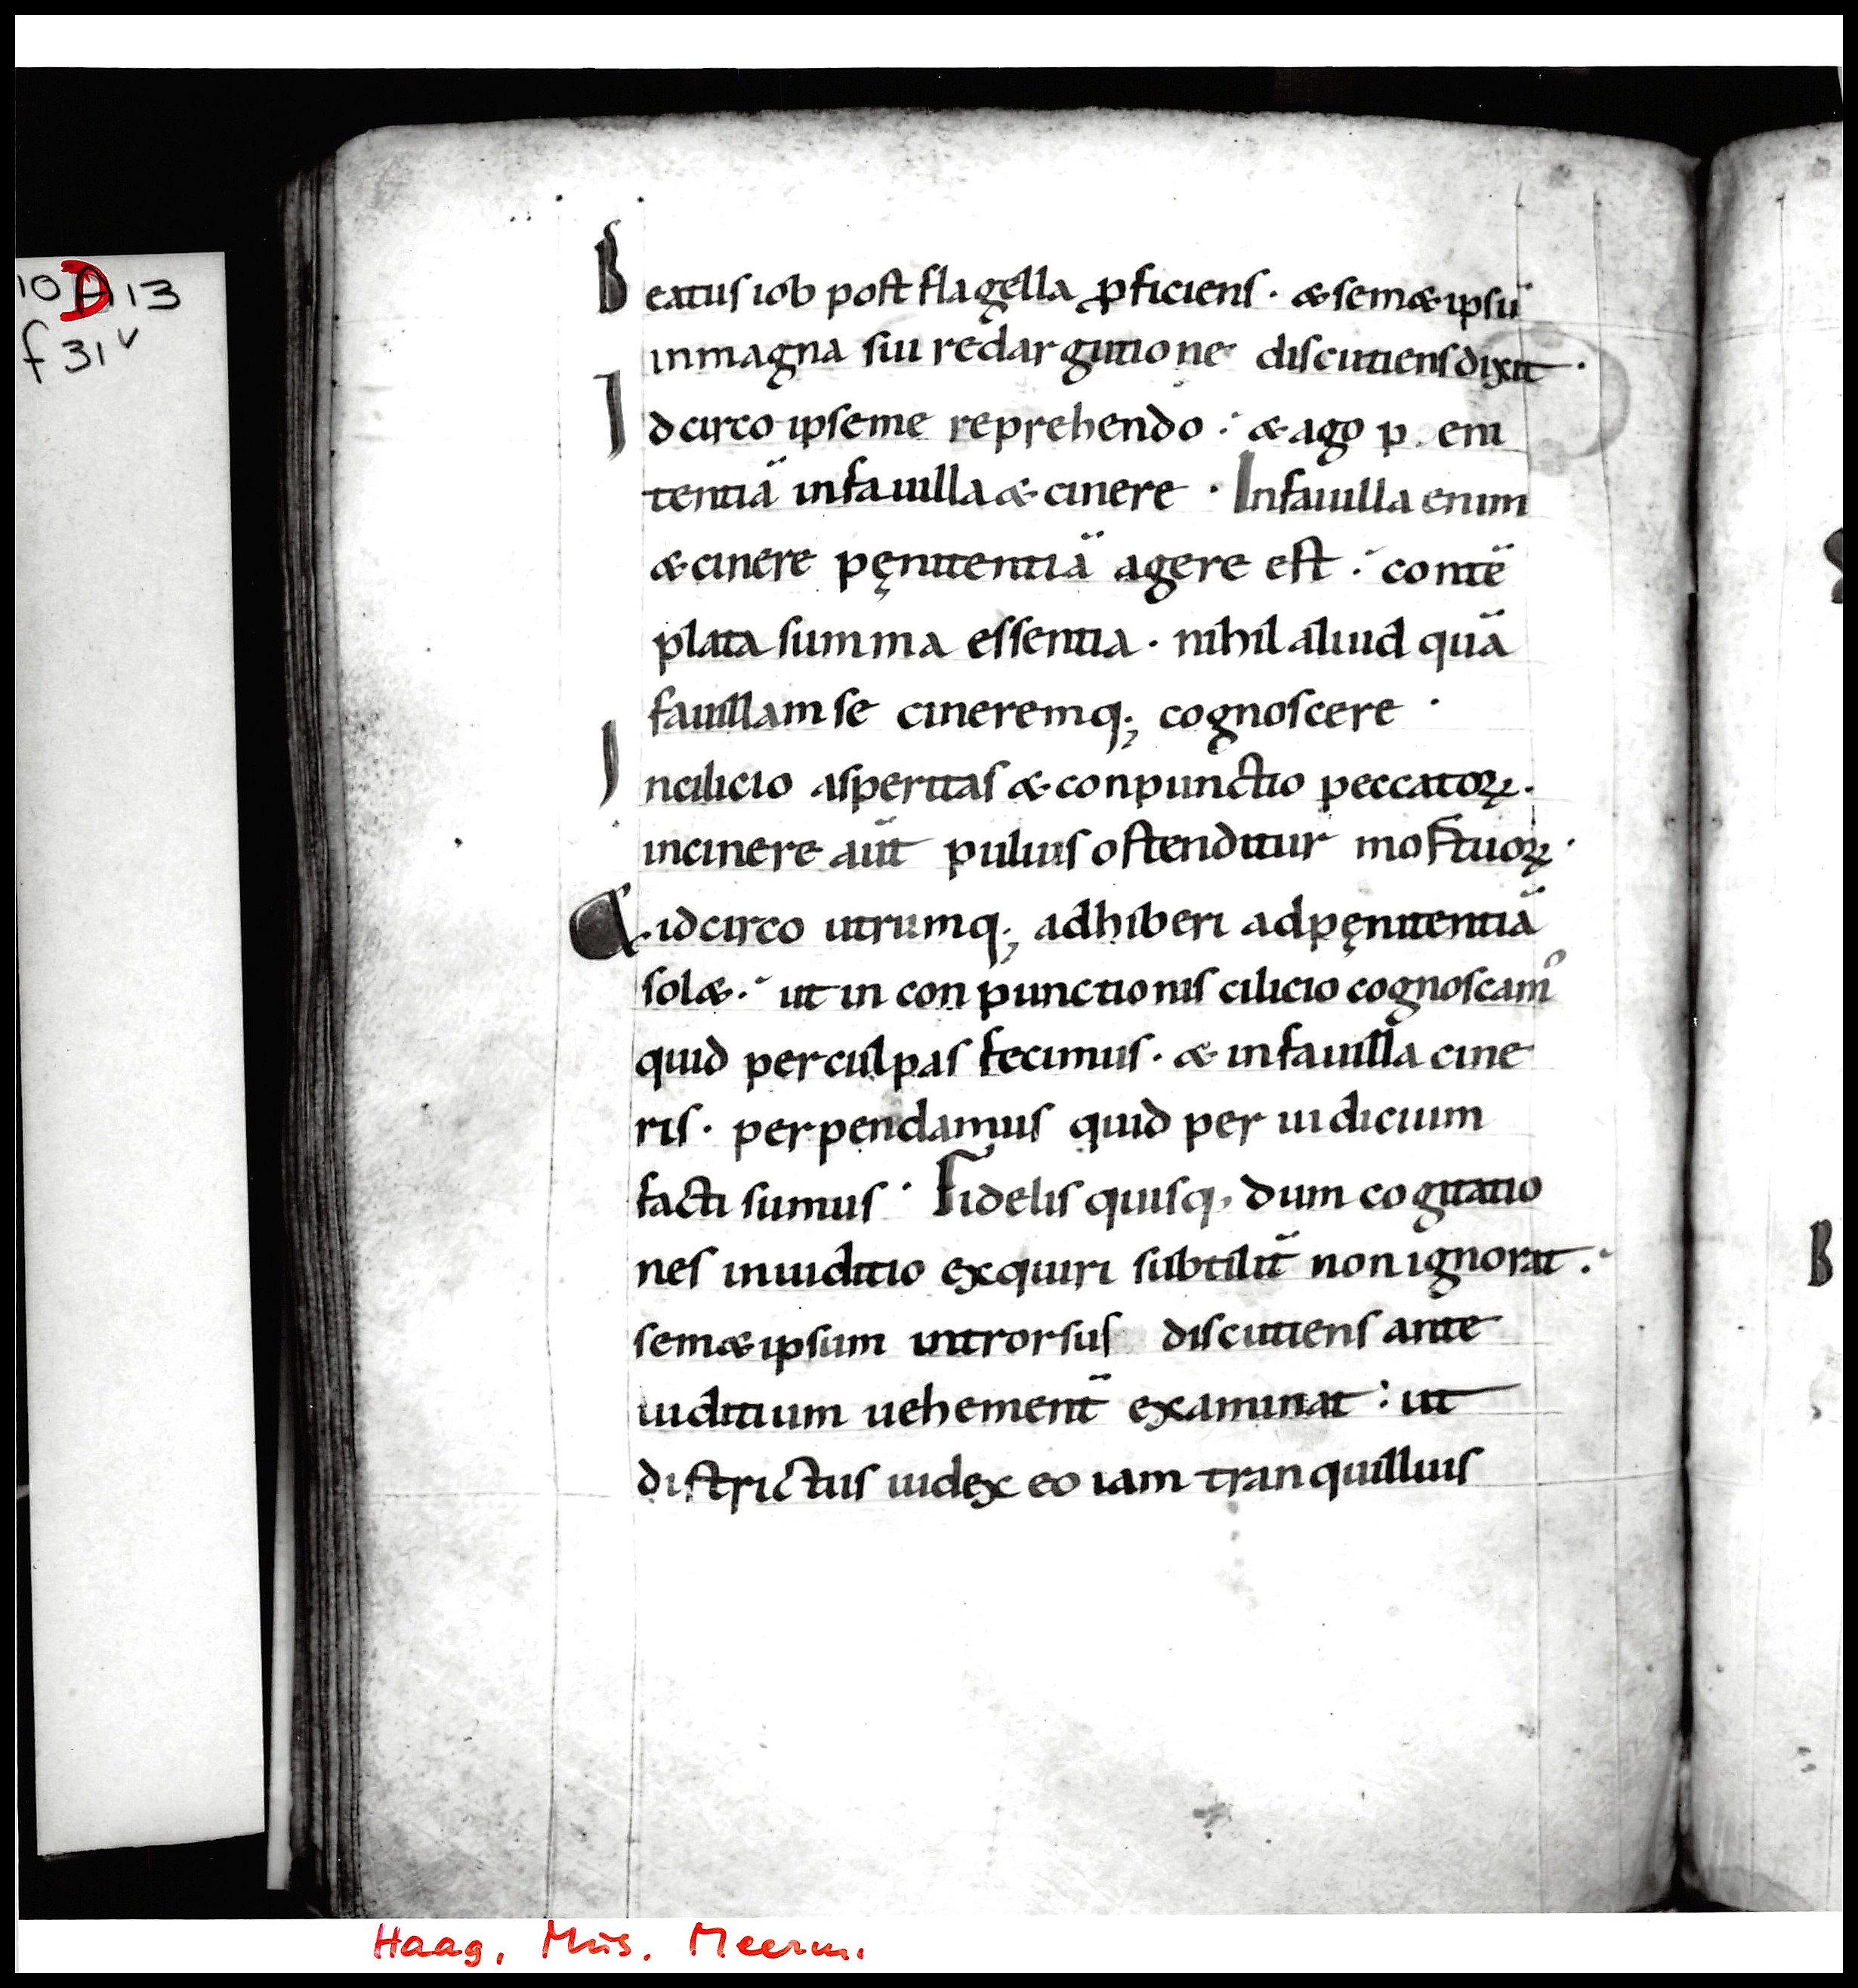 10 D 13
f 31v
Beatus iob post flagella ꝓficiens · & sem&ipsū
in magna sui redargutione discutiens dixit ·
Idcirco ipse me reprehendo · & ago p eni
tentiā in fauilla & cinere · In fauilla enim
& cinere pęnitentiā agere est · contē
plata summa essentia · nihil aliud quā
fauillam se cineremq; cognoscere ·
In cilicio asperitas & conpunctio peccatoꝝ ·
in cinere aūt puluis ostenditur mortuoꝝ ·
Et idcirco utrumq; adhiberi ad pęnitentiā
sol& · ut in conpunctionis cilicio cognoscamꝰ
quid per culpas fecimus · & in fauilla cine
ris · perpendamus quid per iudicium
facti sumus · Fidelis quisq; dum cogitatio
nes in iuditio exquiri subtilit̄ non ignorat ·
sem&ipsum introrsus discutiens ante
iuditium uehement̄ examinat : ut
districtus iudex eo iam tranquillius
B
Haag, Mus. Meerm.